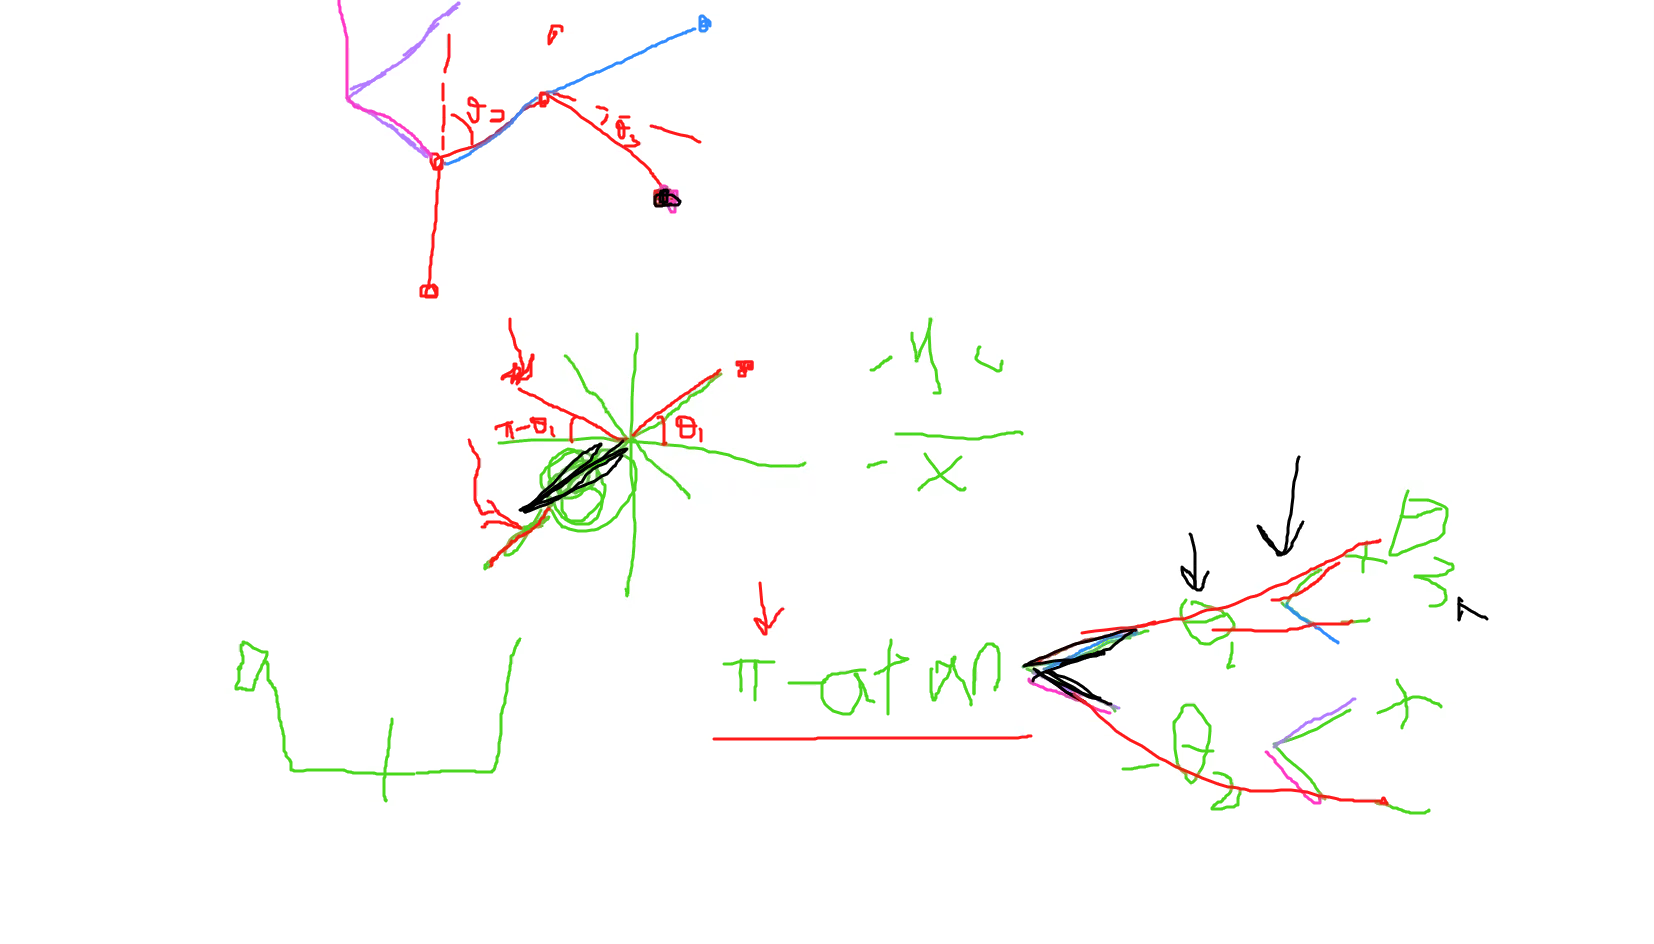 θ2
θ3
π-θ1
θ1
-y
-x
π-atan
θ1
+
θ3
-θ2
+
-